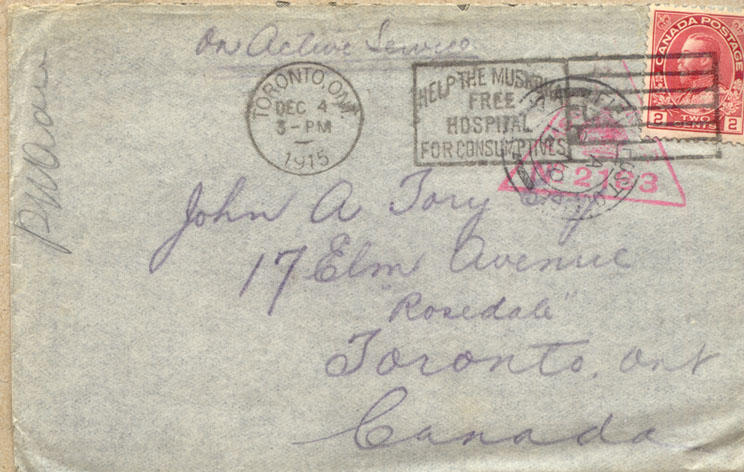 On Active Service
CANADA POSTAGE
2 TWO CENTS 2
TORONTO, ONT.
DEC 4
3-PM
1915
HELP THE MUSKOKA
FREE
HOSPITAL
FOR CONSUMPTIVES
2183
John A Tory Esq
17 Elm Avenue
"Rosedale"
Toronto, Ont
Canada